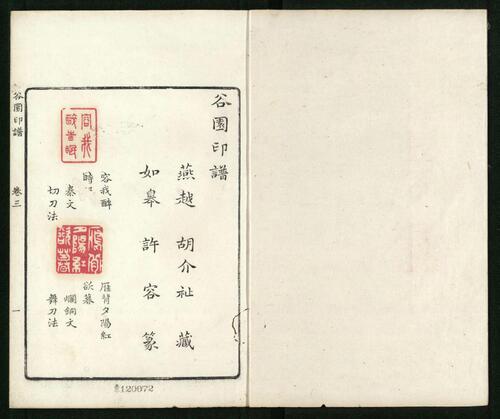 谷園印譜
燕越 胡介祉 藏
如皋 許容 篆
容我醉
時眠
秦文
切刀法
雁背夕陽紅
欲暮
爛銅文
舞刀法
容我
醉時眠
雁背
夕陽紅
欲暮
谷園印譜
卷三
一
120072